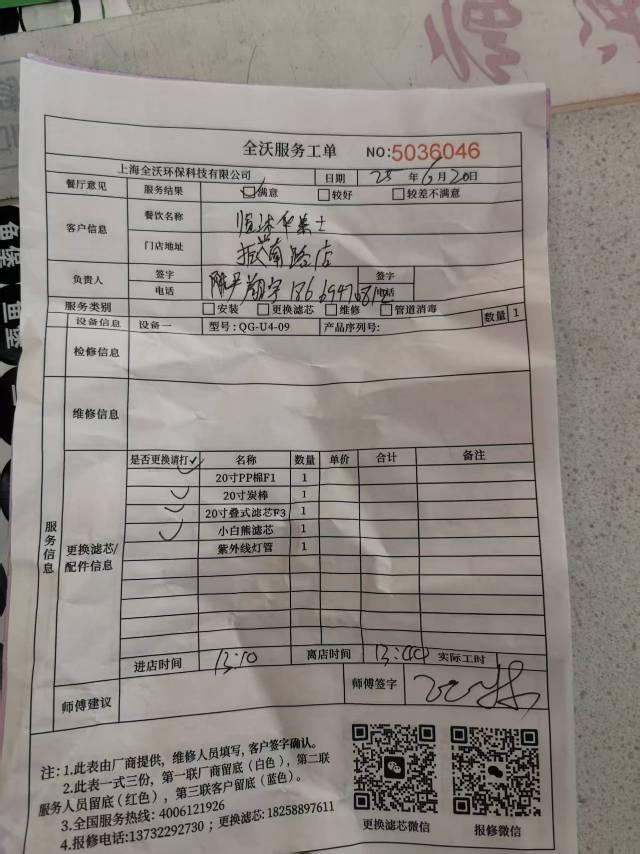 全沃服务工单 NO:5036046
上海全沃环保科技有限公司 日期 25 年 6 月 20 日
餐厅意见 服务结果 满意 较好 较差不满意
客户信息 餐饮名称
门店地址 路店
负责人 签字 签字
电话 电话
服务类别 安装 更换滤芯 维修 管道消毒 数量 1
设备信息 设备一 型号: QG-U4-09 产品序列号:
检修信息
维修信息
服务信息
更换滤芯/
配件信息
是否更换请打✓ 名称 数量 单价 合计 备注
✓ 20寸PP棉F1 1
✓ 20寸炭棒 1
✓ 20寸叠式滤芯F3 1
✓ 小白熊滤芯 1
紫外线灯管 1
进店时间 13:10 离店时间 13:40 实际工时
师傅建议 师傅签字
注: 1.此表由厂商提供，维修人员填写, 客户签字确认。
2.此表一式三份，第一联厂商留底（白色），第二联
服务人员留底（红色），第三联客户留底（蓝色）。
3.全国服务热线: 4006121926
4.报修电话:13732292730 ; 更换滤芯: 18258897611
更换滤芯微信 报修微信